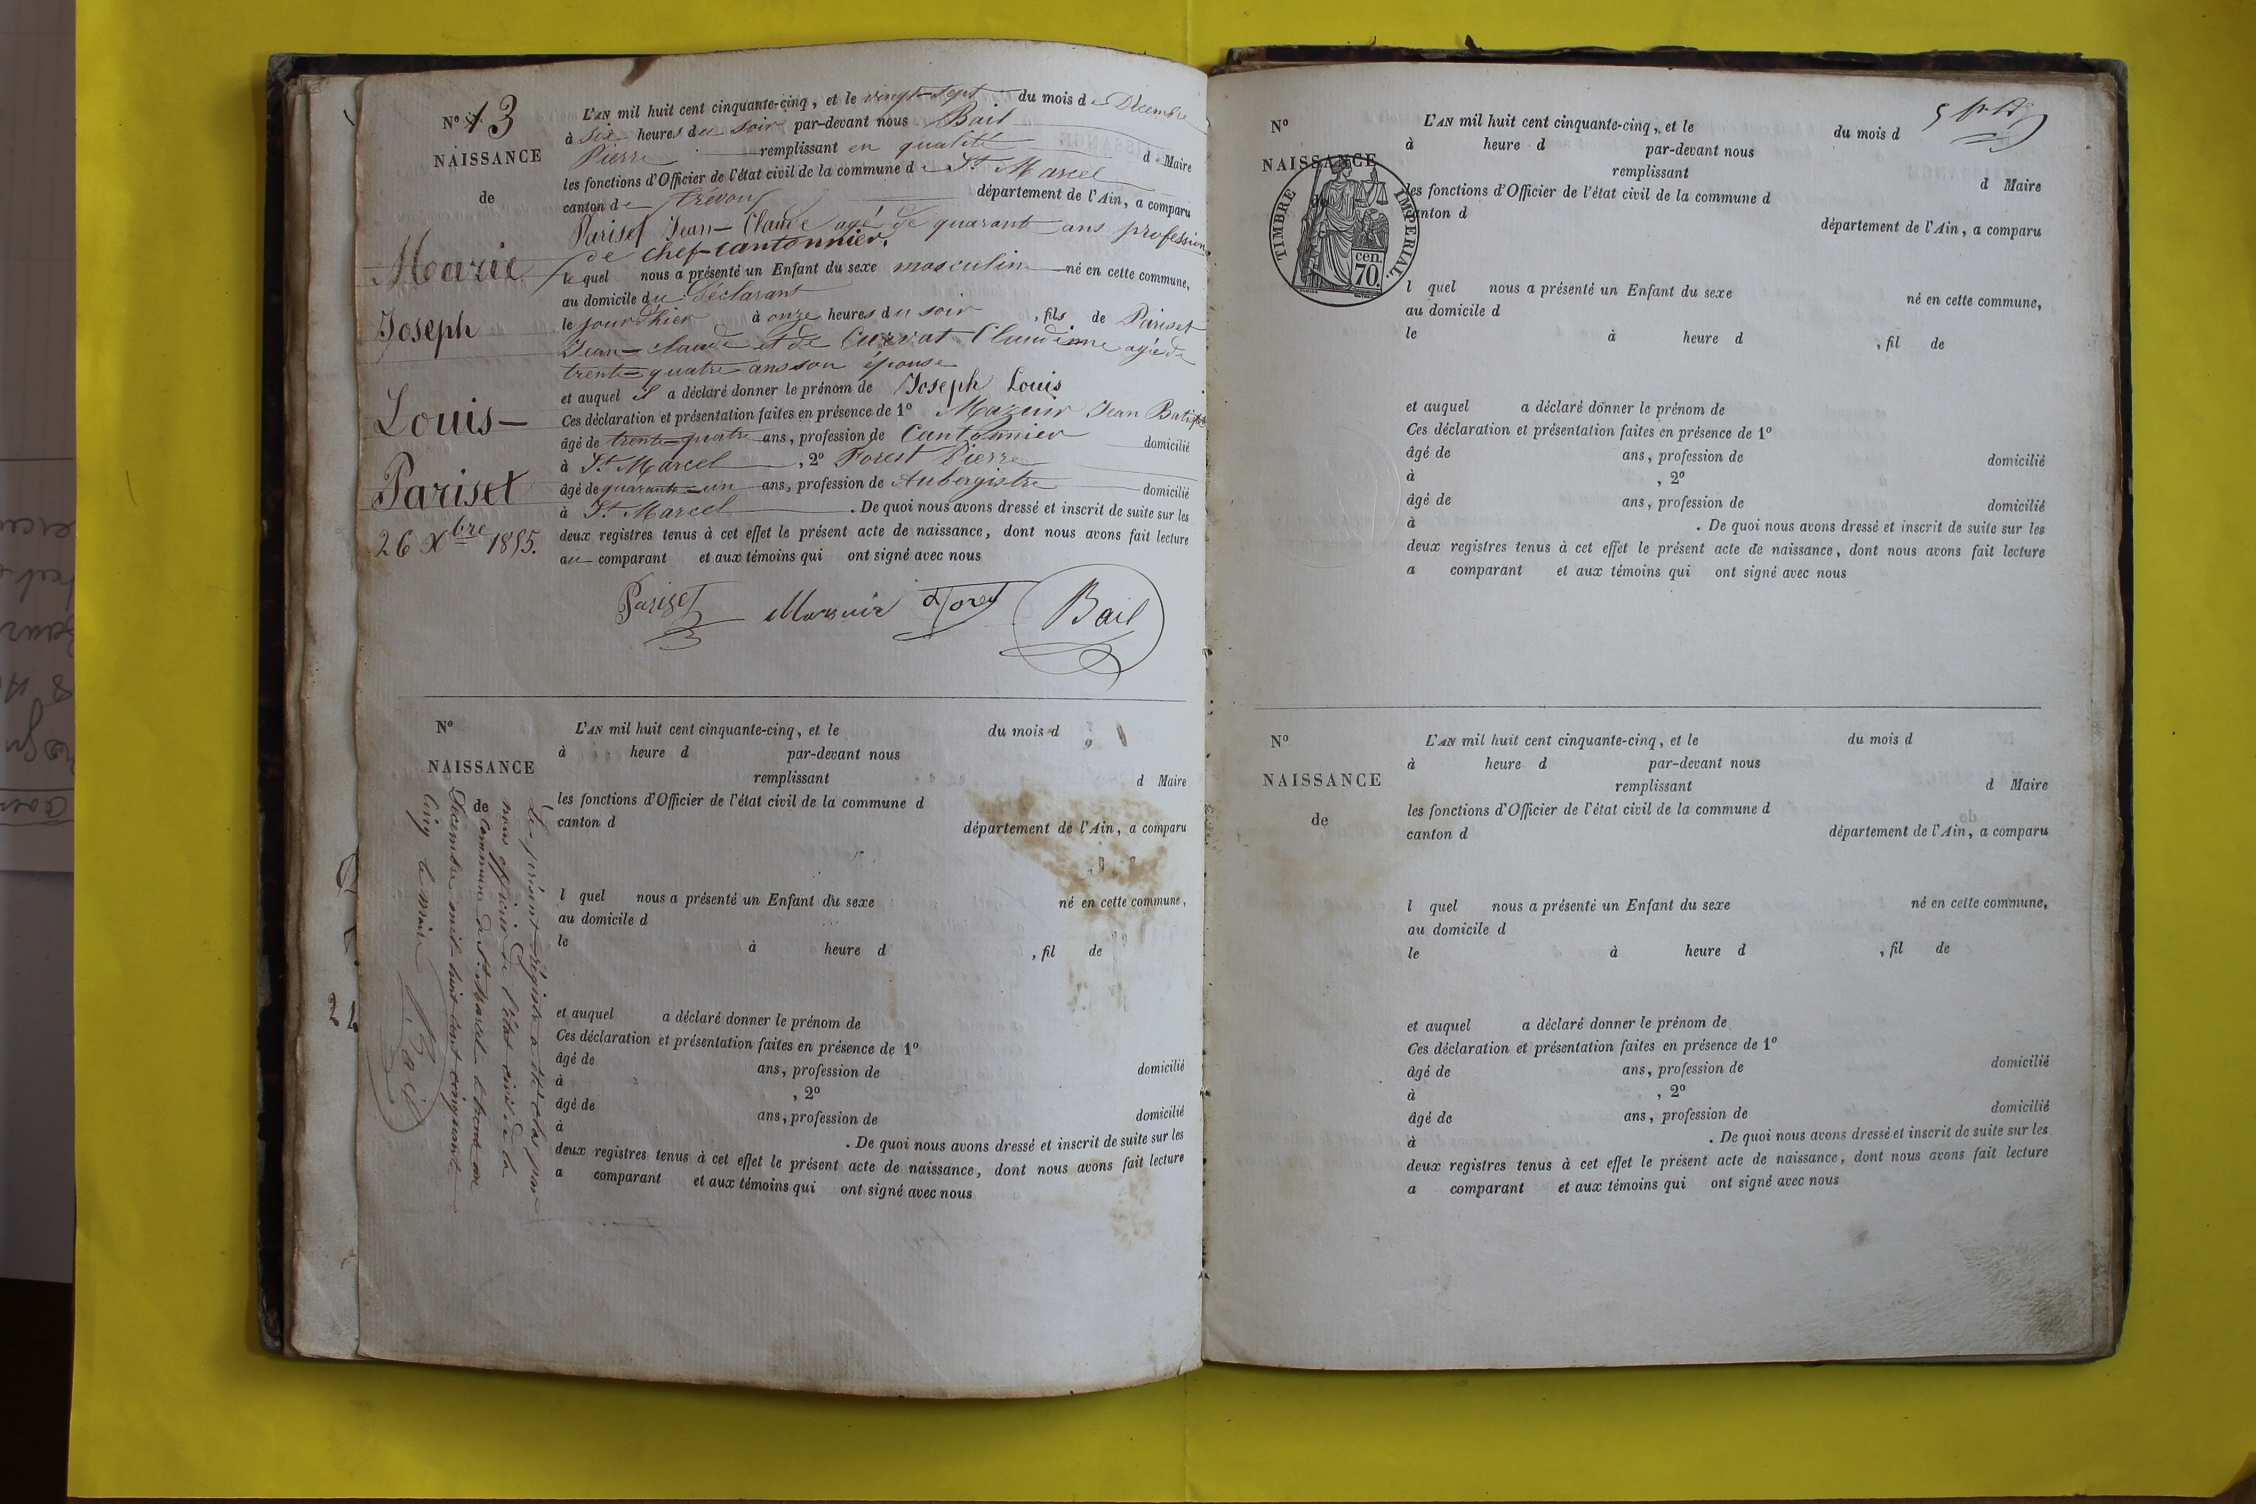 N° 13
NAISSANCE
de
Marie
Joseph
Louis-
Pariset
26 Xbre 1855.
L'AN mil huit cent cinquante-cinq, et le vingt-sept du mois de Décembre
à six heures du soir par-devant nous Bail
Pierre remplissant en qualité d Maire
les fonctions d'Officier de l'état civil de la commune de St Marcel
canton de Trévoux département de l'Ain, a comparu
Pariset Jean-Claude agé de quarant ans profession
de chef-cantonnier.
lequel nous a présenté un Enfant du sexe masculin né en cette commune,
au domicile du Déclarant
le jour d'hier à onze heures du soir, fils de Pariset
Jean-claude et de Curvat Claudinne agée de
trente-quatre ans son épouse
et auquel il a déclaré donner le prénom de Joseph Louis
Ces déclaration et présentation faites en présence de 1° Mazuir Jean Batiste
âgé de trente-quatre ans, profession de Cantonnier domicilié
à St Marcel, 2° Forest Pierre
âgé de quarante-un ans, profession de Aubergistre domicilié
à St Marcel. De quoi nous avons dressé et inscrit de suite sur les
deux registres tenus à cet effet le présent acte de naissance, dont nous avons fait lecture
au comparant et aux témoins qui ont signé avec nous
Pariset Forest Bail
N°
NAISSANCE
de
L'AN mil huit cent cinquante-cinq, et le du mois d
à heure d par-devant nous
remplissant d Maire
les fonctions d'Officier de l'état civil de la commune d
canton d département de l'Ain, a comparu
l quel nous a présenté un Enfant du sexe né en cette commune,
au domicile d
le à heure d, fil de
et auquel a déclaré donner le prénom de
Ces déclaration et présentation faites en présence de 1°
âgé de ans, profession de domicilié
à, 2°
âgé de ans, profession de domicilié
à. De quoi nous avons dressé et inscrit de suite sur les
deux registres tenus à cet effet le présent acte de naissance, dont nous avons fait lecture
a comparant et aux témoins qui ont signé avec nous
Le présent régistre a été clos par
nous officier de l'état civil de la
commune de St Marcel le trente un
Décembre mil huit cent cinquante
cinq le maire Bail
N°
NAISSANCE
de
TIMBRE IMPERIAL.
cen.
70.
L'AN mil huit cent cinquante-cinq, et le du mois d
à heure d par-devant nous
remplissant d Maire
les fonctions d'Officier de l'état civil de la commune d
canton d département de l'Ain, a comparu
l quel nous a présenté un Enfant du sexe né en cette commune,
au domicile d
le à heure d, fil de
et auquel a déclaré donner le prénom de
Ces déclaration et présentation faites en présence de 1°
âgé de ans, profession de domicilié
à, 2°
âgé de ans, profession de domicilié
à. De quoi nous avons dressé et inscrit de suite sur les
deux registres tenus à cet effet le présent acte de naissance, dont nous avons fait lecture
a comparant et aux témoins qui ont signé avec nous
N°
NAISSANCE
de
L'AN mil huit cent cinquante-cinq, et le du mois d
à heure d par-devant nous
remplissant d Maire
les fonctions d'Officier de l'état civil de la commune d
canton d département de l'Ain, a comparu
l quel nous a présenté un Enfant du sexe né en cette commune,
au domicile d
le à heure d, fil de
et auquel a déclaré donner le prénom de
Ces déclaration et présentation faites en présence de 1°
âgé de ans, profession de domicilié
à, 2°
âgé de ans, profession de domicilié
à. De quoi nous avons dressé et inscrit de suite sur les
deux registres tenus à cet effet le présent acte de naissance, dont nous avons fait lecture
a comparant et aux témoins qui ont signé avec nous